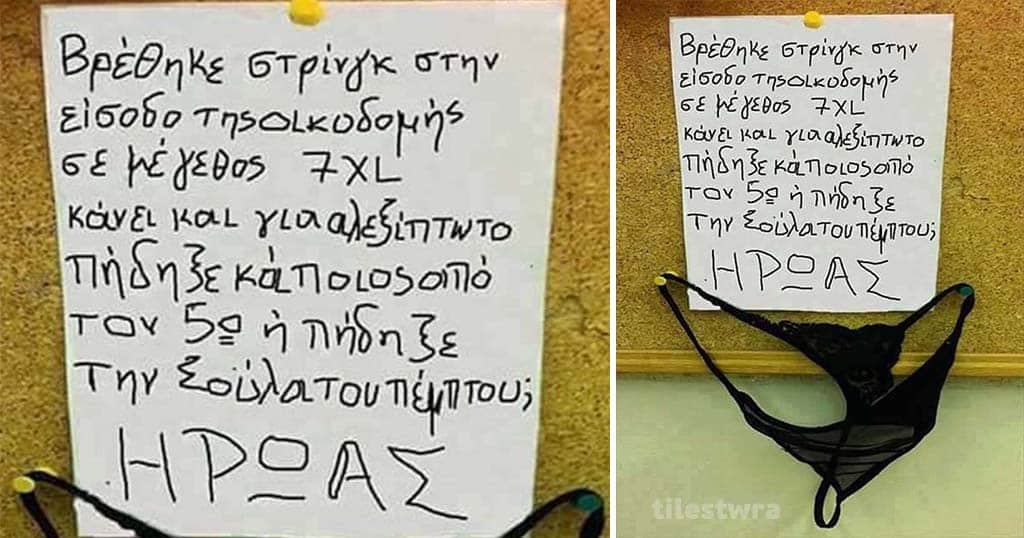 Βρέθηκε στρίνγκ στην
είσοδο της οικοδομής
σε μέγεθος 7XL
κάνει και για αλεξίπτωτο
πήδηξε κάποιος από
τον 5º ή πήδηξε
την ξούλα του πέμπτου;
ΗΡΩΑΣ
Βρέθηκε στρίνγκ στην
είσοδο της οικοδομής
σε μέγεθος 7XL
κάνει και για αλεξίπτωτο
πήδηξε κάποιος από
τον 5º ή πήδηξε
την ξούλα του πέμπτου;
ΗΡΩΑΣ
tilestwra